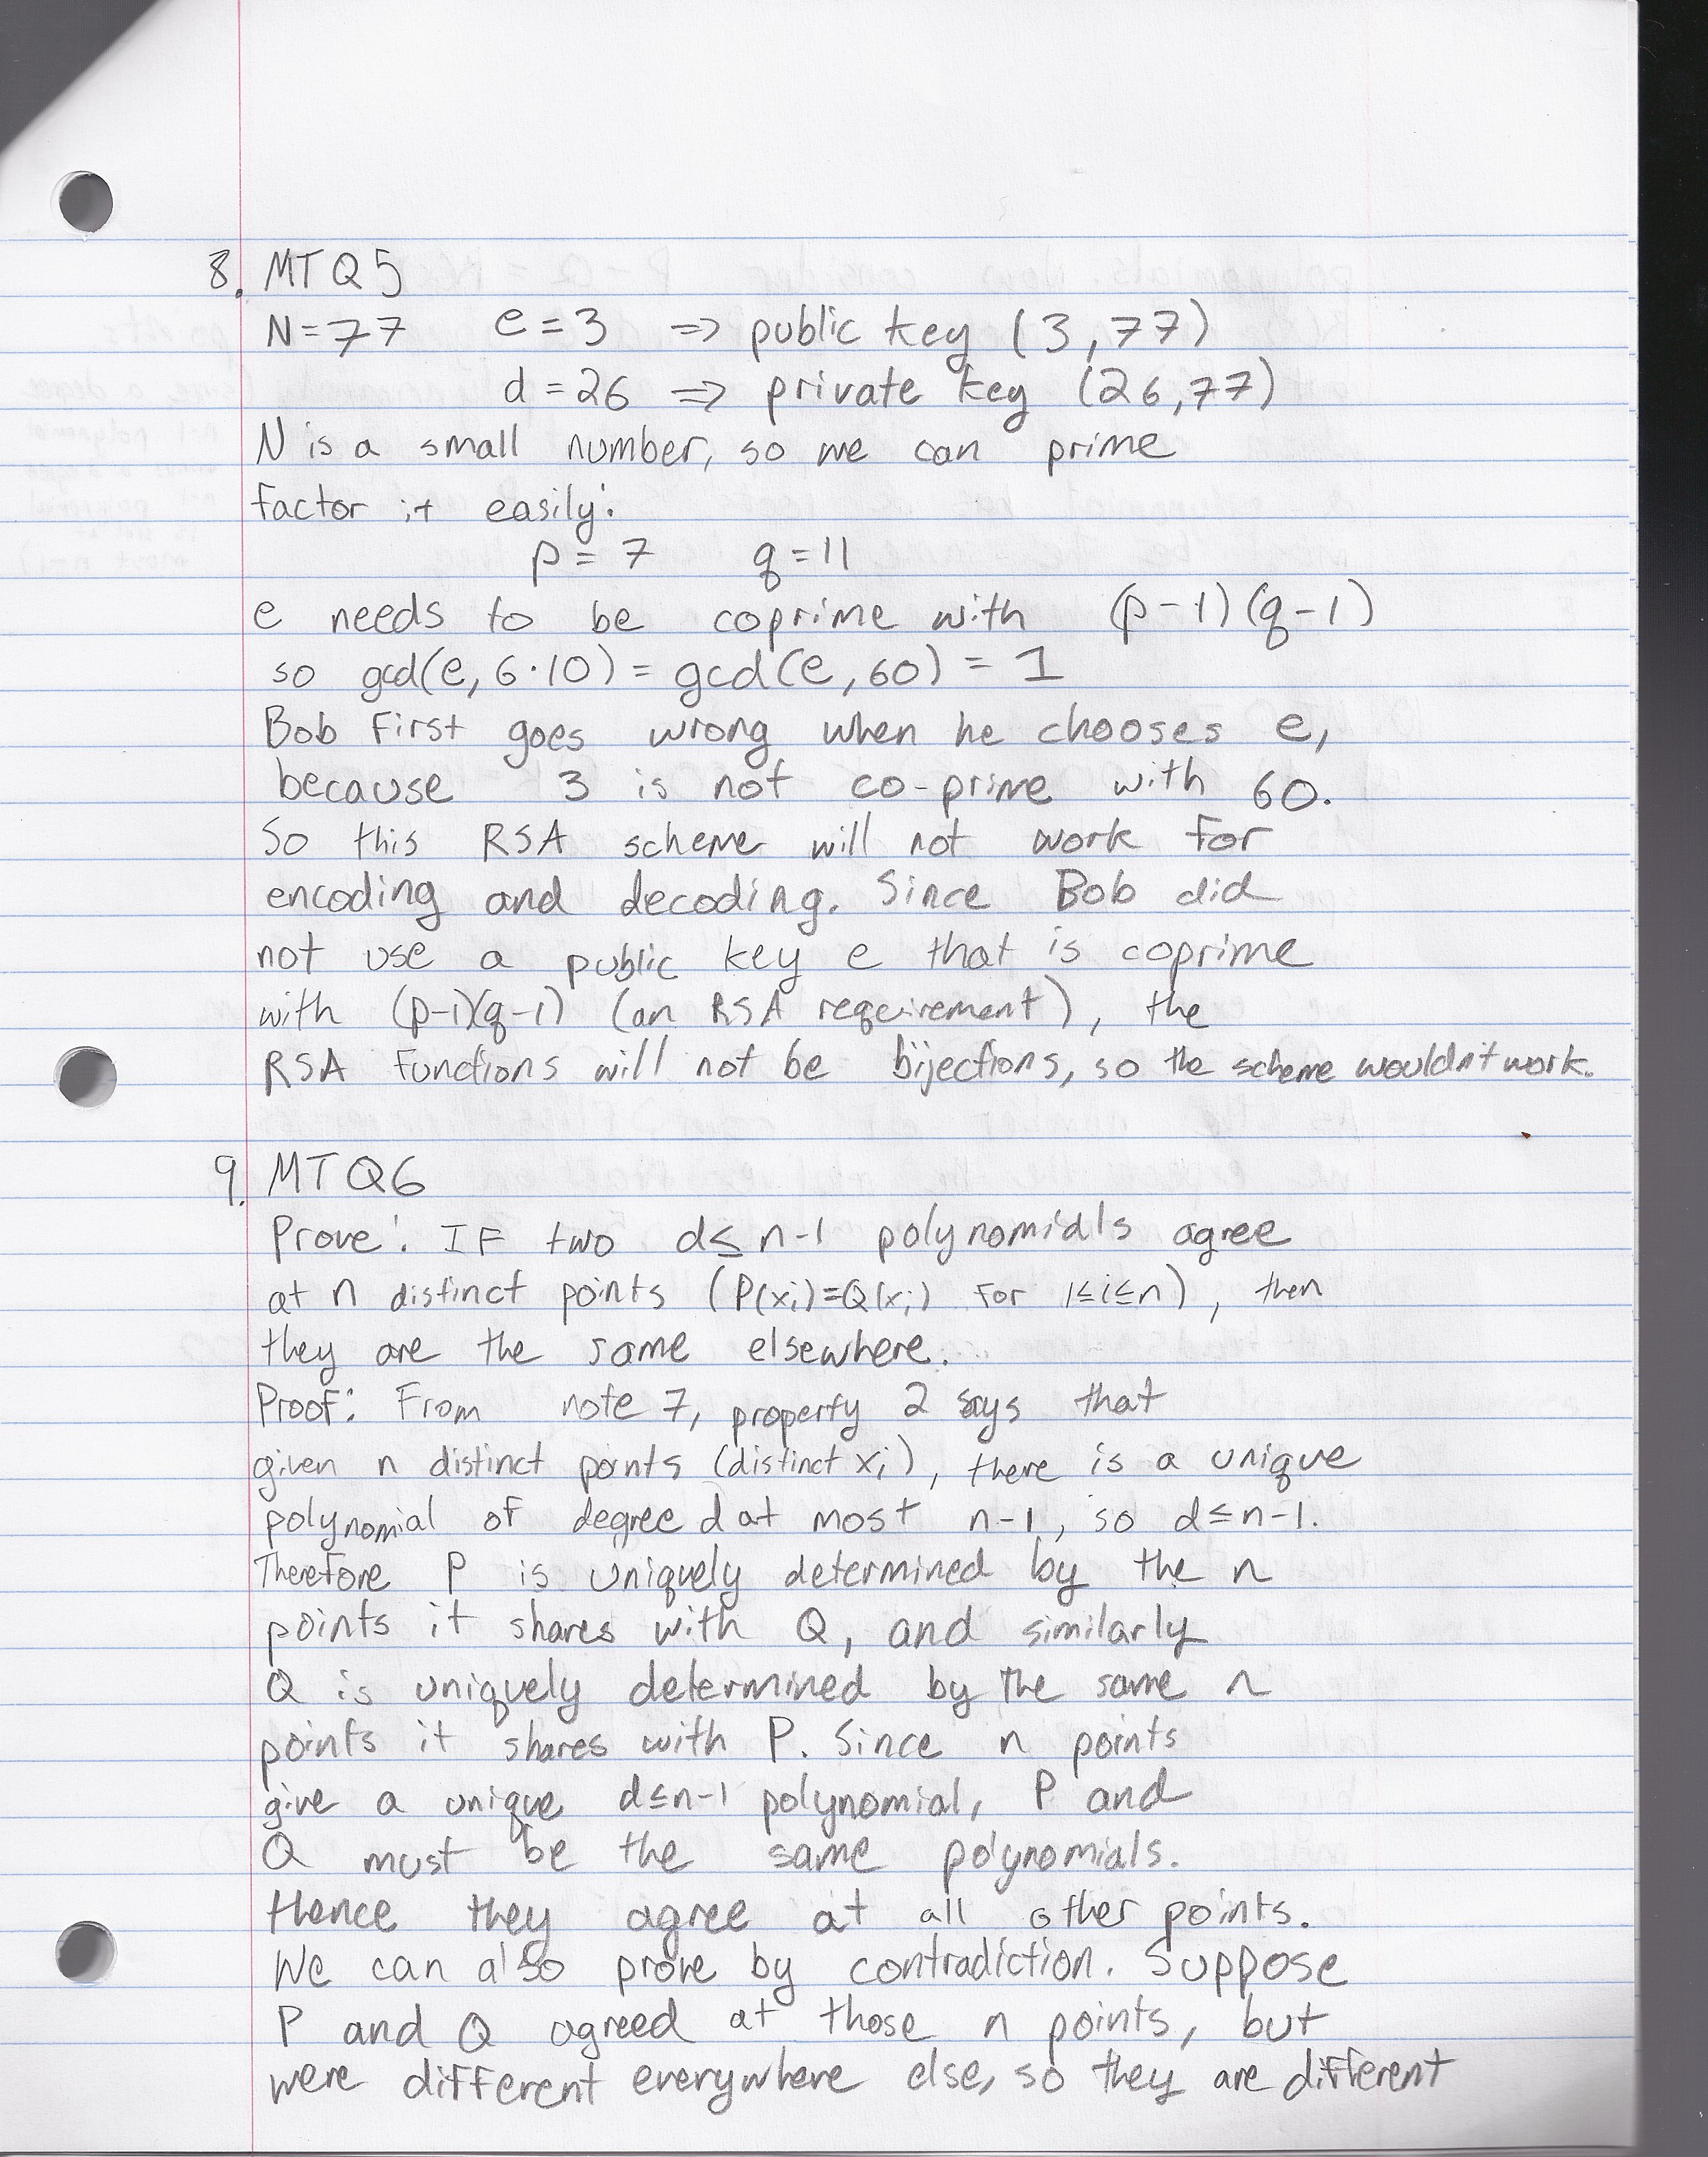 8. MTQ5
N=77 e=3 => public key (3,77)
d=26 => private key (26,77)
N is a small number, so we can prime
factor it easily:
p=7 q=11
e needs to be coprime with (p-1)(q-1)
so gcd(e,6·10)=gcd(e,60)=1
Bob first goes wrong when he chooses e,
because 3 is not co-prime with 60.
So this RSA scheme will not work for
encoding and decoding. Since Bob did
not use a public key e that is coprime
with (p-1)(q-1) (an RSA requirement), the
RSA functions will not be bijections, so the scheme wouldn't work.
9. MTQ6
Prove: If two d≤n-1 polynomials agree
at n distinct points (P(xi)=Q(xi) for 1≤i≤n), then
they are the same elsewhere.
Proof: From note 7, property 2 says that
given n distinct points (distinct xi), there is a unique
polynomial of degree d at most n-1, so d≤n-1.
Therefore P is uniquely determined by the n
points it shares with Q, and similarly
Q is uniquely determined by the same n
points it shares with P. Since n points
give a unique d≤n-1 polynomial, P and
Q must be the same polynomials.
Hence they agree at all other points.
We can also prove by contradiction. Suppose
P and Q agreed at those n points, but
were different everywhere else, so they are different